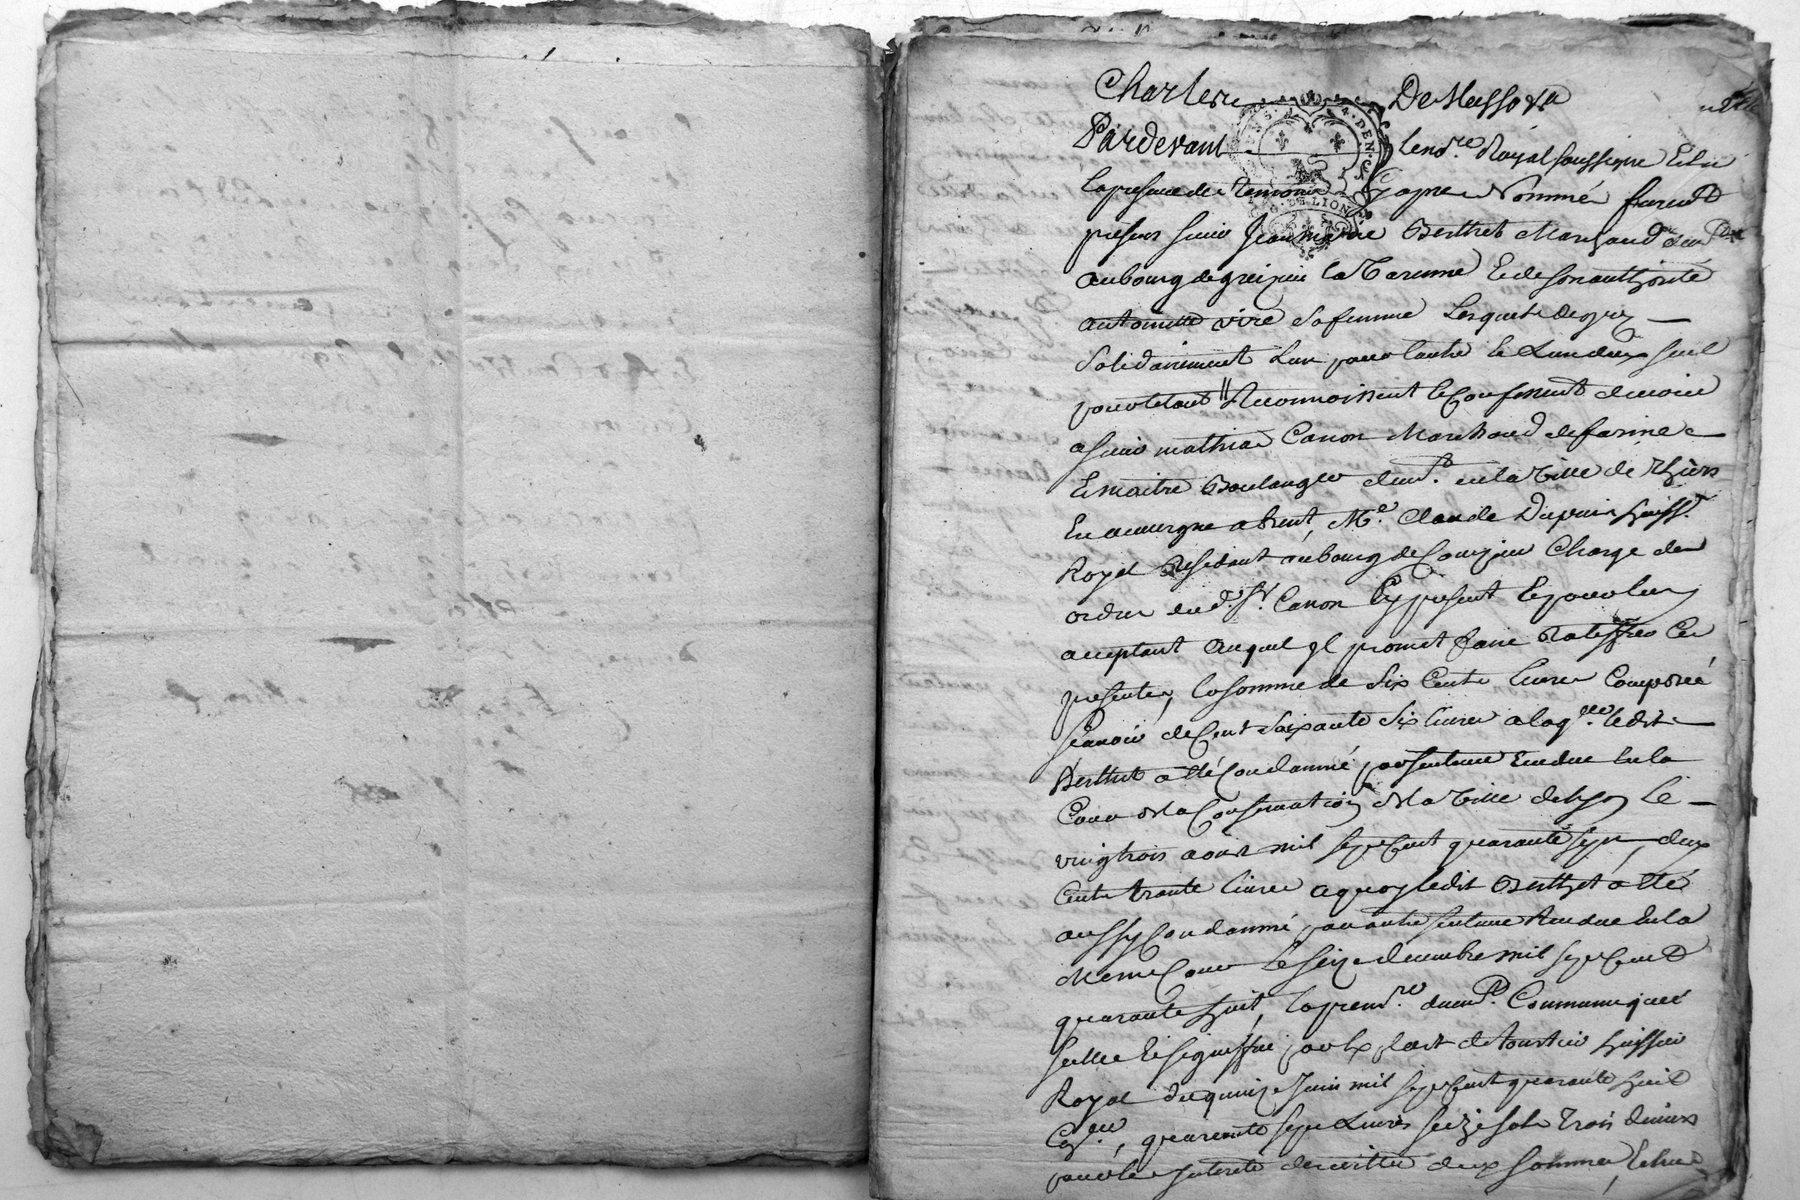 Charles De Massoxa
Pardevant le no.re Royal soussigne Et en
la presence des temoins Cy apres Nommés furent
presens sieur Jean marie Berthet Marchand dem.t
au bourg de greizieu la Varenne Et de son authorité
antoinette viré sa femme Lesquels de gré
solidairement L'un pour l'autre Et L'un deux seul
pour le tout Reconnoissent Et Confessent devoir
a sieur mathias Canon Marchand de farines
Et maitre Boulanger dem.t en la Ville de Thiers
En auvergne absent, M.e Claude Dupuis huiss.r
Royal Residant au bourg de Courzieu Charge des
ordres du d. s.r Canon Cy present Et pour luy
acceptant auquel Il promet faire Ratiffier Ces
presentes, la somme de Six Cents livres Composée
sçavoir de Cent Soixante Six livres a laq.lle ledit
Berthet a eté Condamné par sentence Rendue En la
Cour de la Conservation de la Ville de Lyon Le
vingt trois aoust mil sept Cent quarante sept, deux
Cents trante livres a quoy ledit Berthet a eté
aussy Condamné par autre sentence Rendue En la
meme Cour Le seize decembre mil sept Cent
quarante huit, la prem.re duem.t Communiquée
scellée Et signiffiée par Exploit de huissier
Royal du quinze Juin mil sept Cent quarante huit
quarante sept Livres seize sols trois deniers
pour les interets desdittes deux sommes